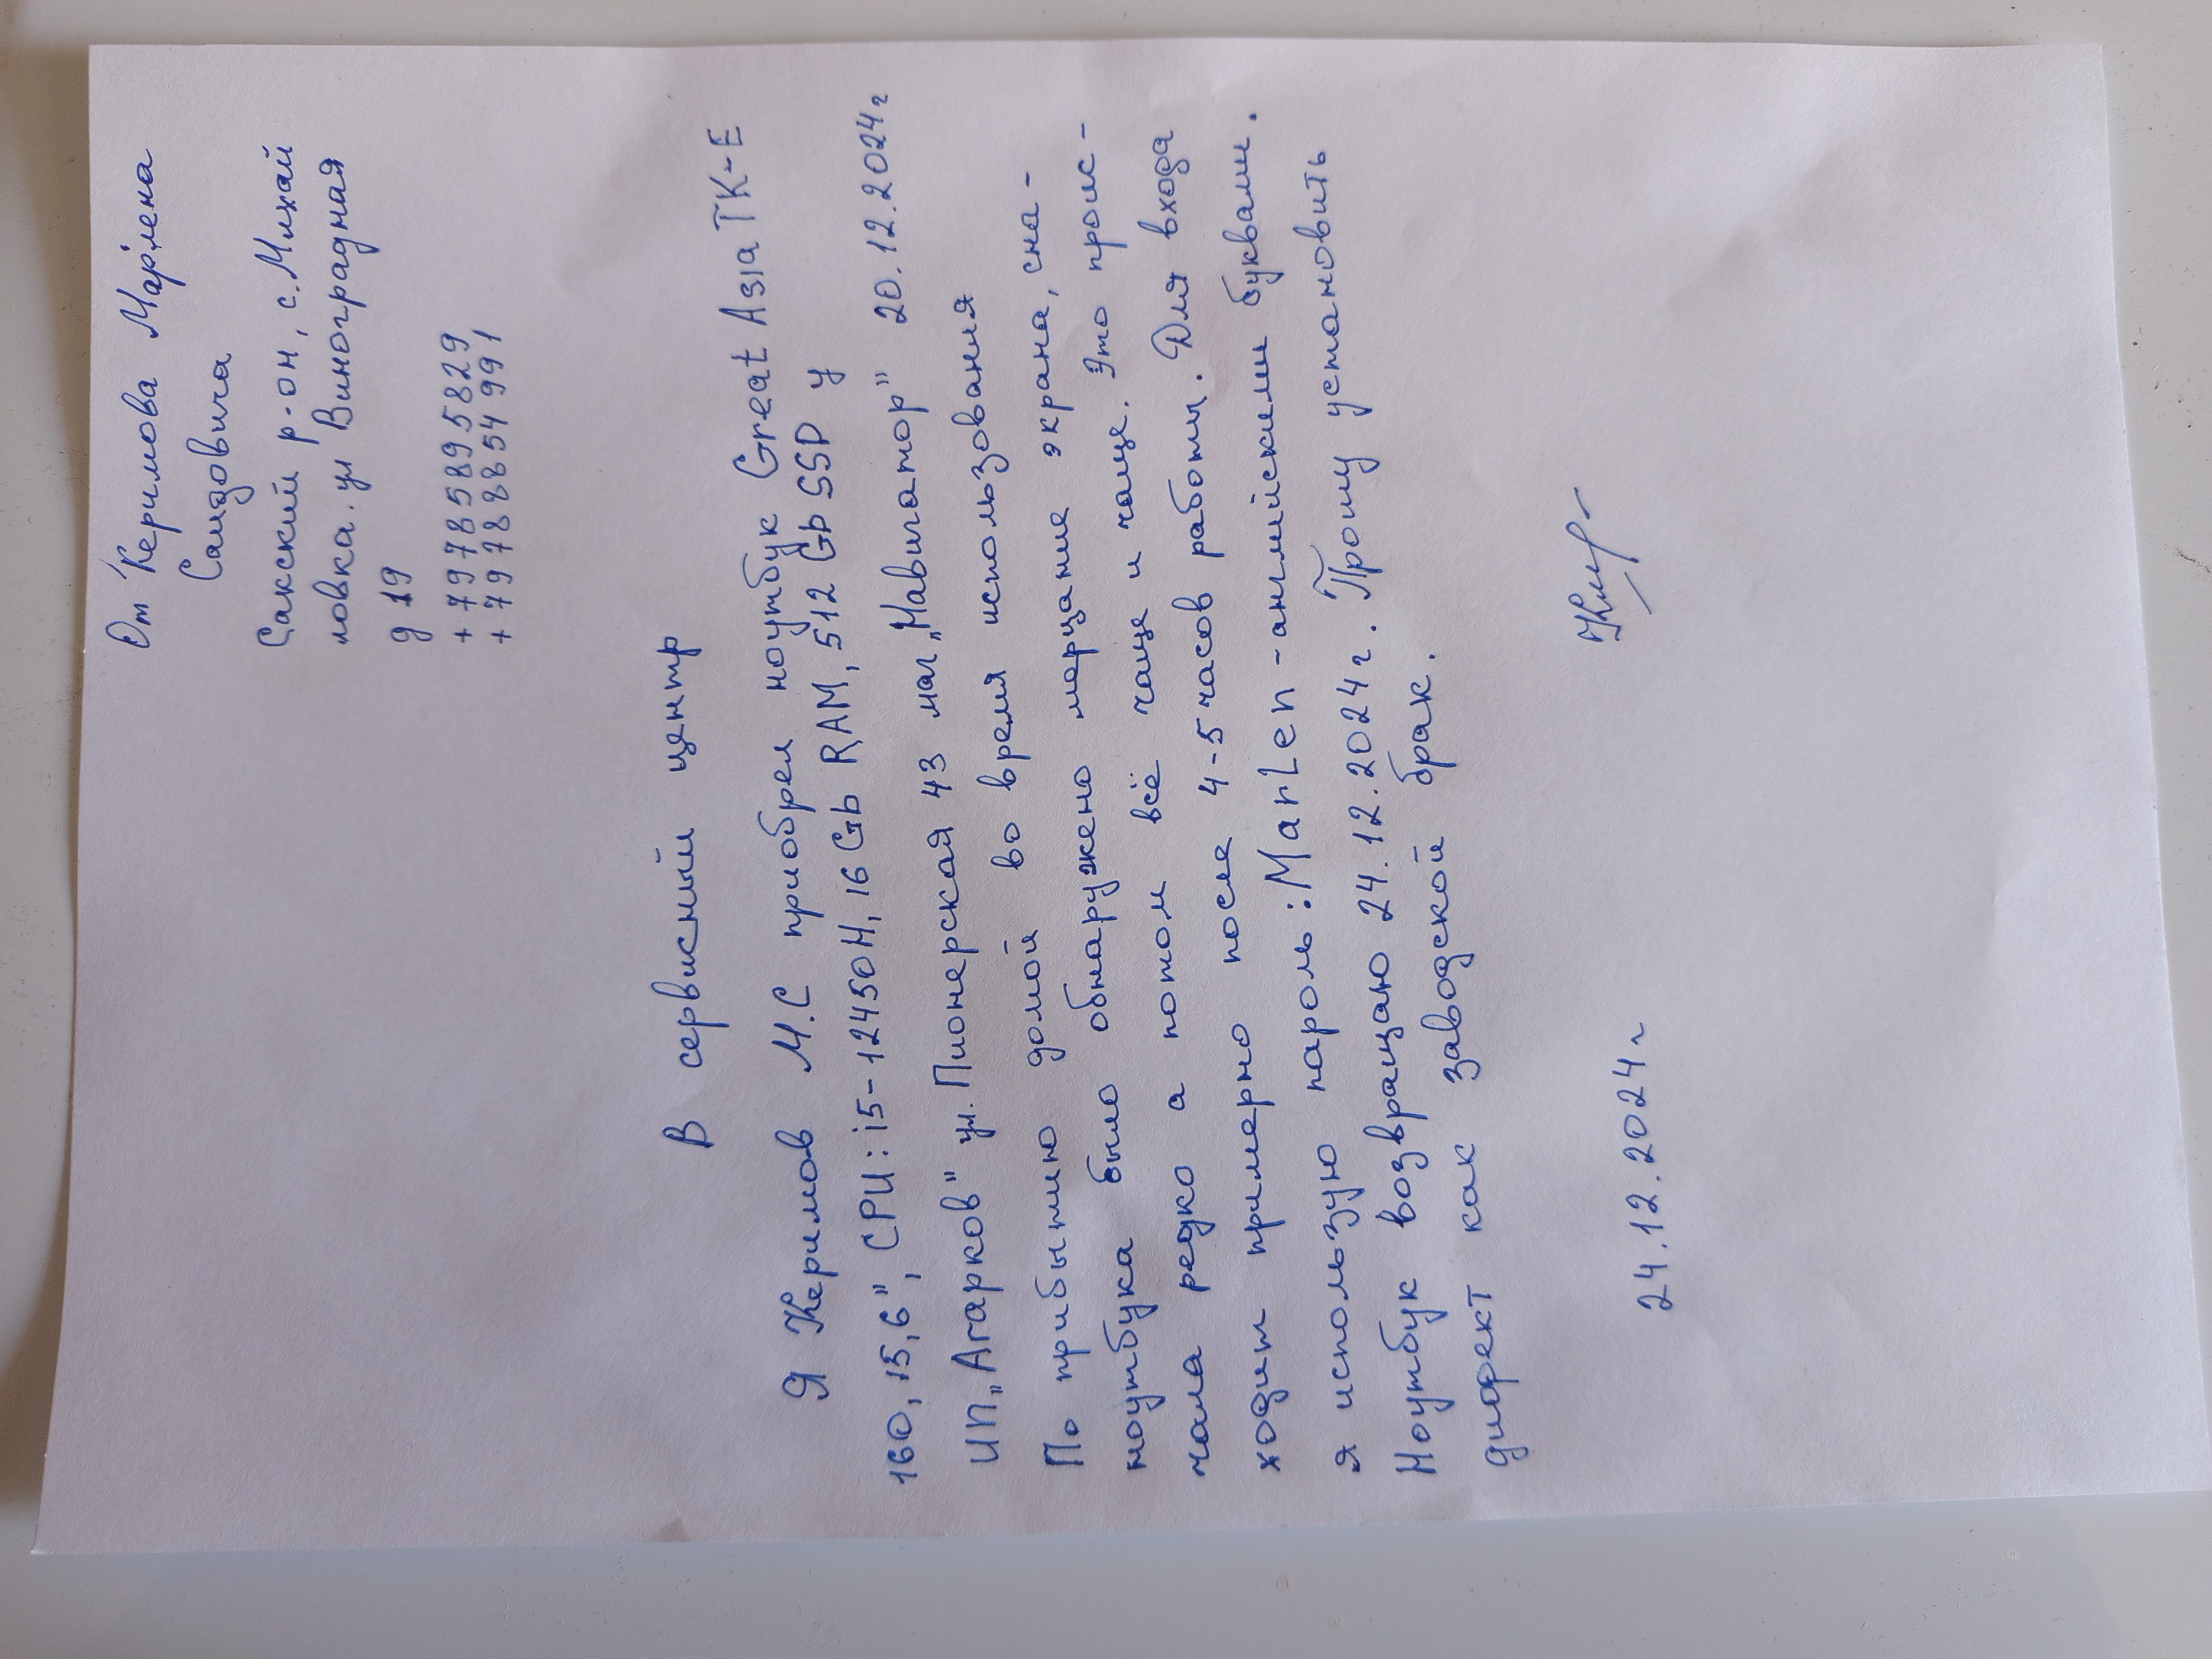 От Керимова Марлена
Саидовича
Сакский р-он, с. Михай
ловка. ул Виноградная
д 19
+79785895829
+79788854991
В сервисный центр
Я Керимов М.С приобрел ноутбук Great Asia TK-E
160, 15,6", CPU: i5-12450H, 16 Gb RAM, 512 Gb SSD у
ИП „Агарков" ул. Пионерская 43 маг „Навигатор" 20.12.2024г
По прибытию домой во время использования
ноутбука было обнаружено мерцание экрана, сна-
чала редко а потом всё чаще и чаще. Это проис-
ходит примерно после 4-5 часов работы. Для входа
я использую пароль: Marlen - английскими буквами.
Ноутбук возвращаю 24.12.2024г. Прошу установить
дифект как заводской брак.
24.12.2024г